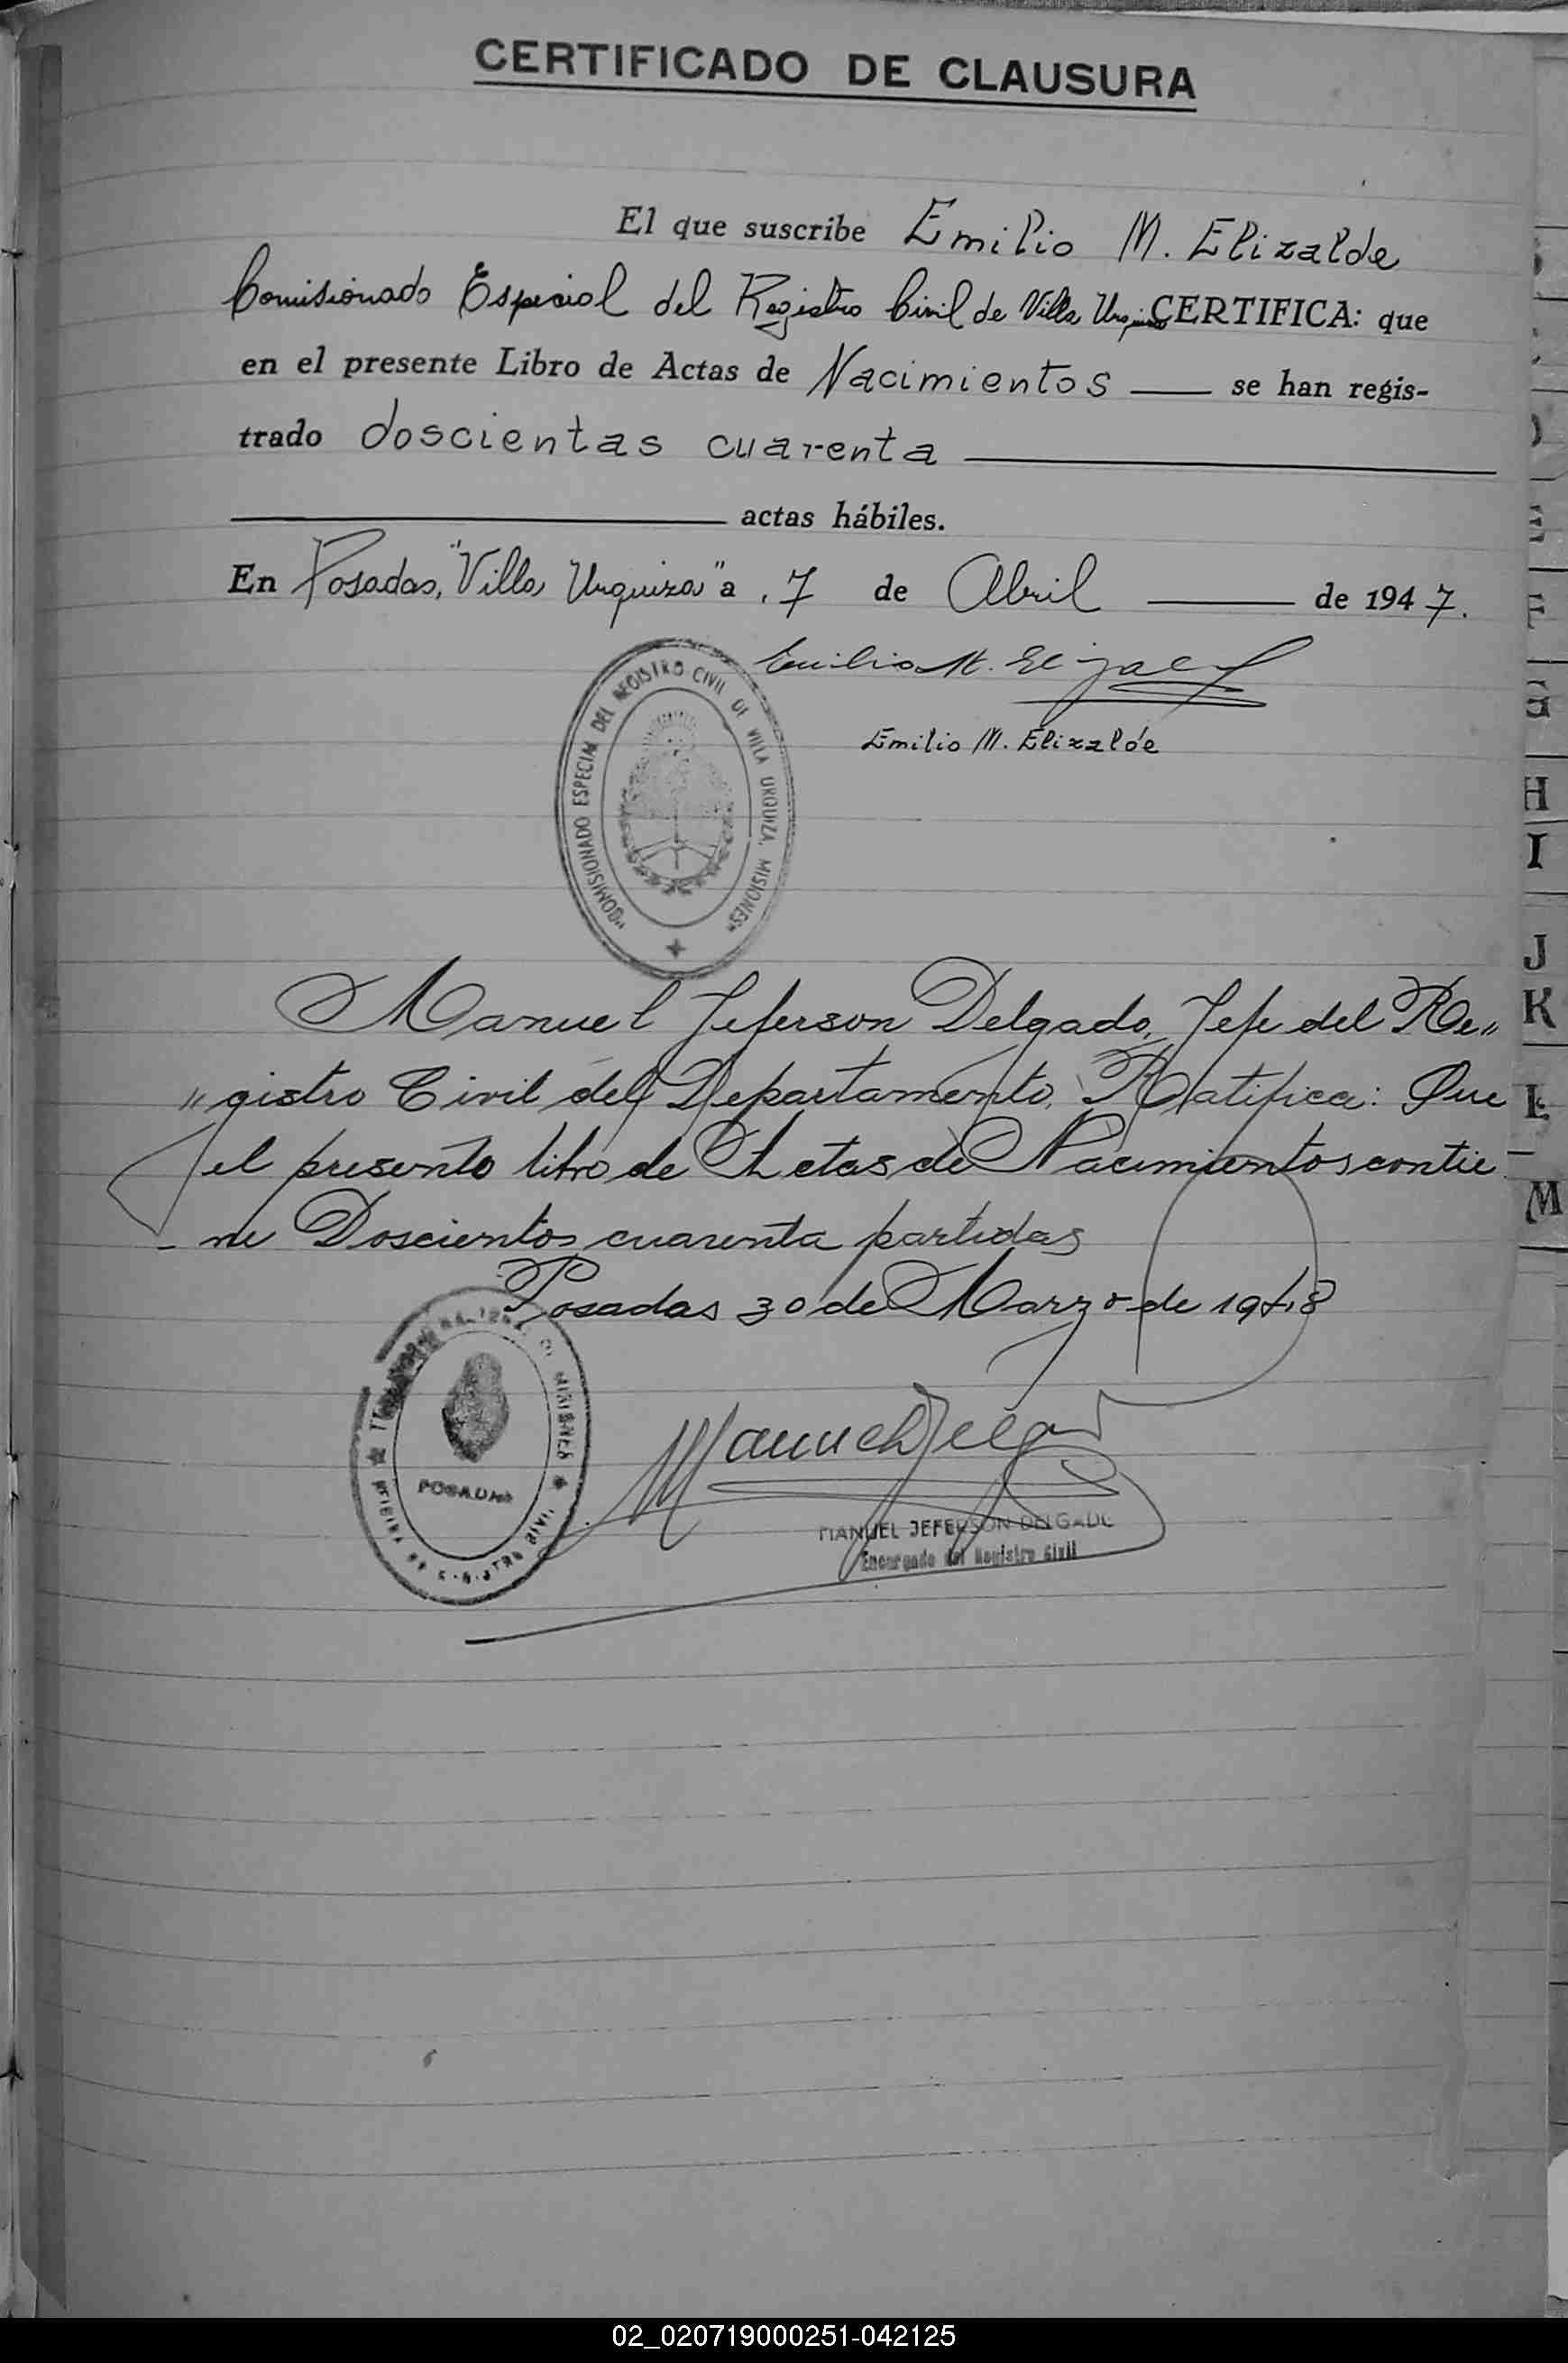 CERTIFICADO DE CLAUSURA
El que suscribe Emilio M. Elizalde
Comisionado Especial del Registro Civil de Villa Urquiza CERTIFICA: que
en el presente Libro de Actas de Nacimientos — se han regis-
trado doscientas cuarenta —
— actas hábiles.
En Posadas, "Villa Urquiza" a 7 de Abril — de 1947.
Emilio M. Elizalde
Emilio M. Elizalde
"COMISIONADO ESPECIAL DEL REGISTRO CIVIL DE VILLA URQUIZA, MISIONES"
Manuel Jeferson Delgado, Jefe del Re"
"gistro Civil del Departamento, Ratifica: Que
el presente libro de Actas de Nacimientos contie
- ne Doscientos cuarenta partidas
Posadas 30 de Marzo de 1948
POSADAS
Manuel J Delgado
MANUEL JEFERSON DELGADO
Encargado del Registro Civil
H
I
J
K
L
M
02_020719000251-042125